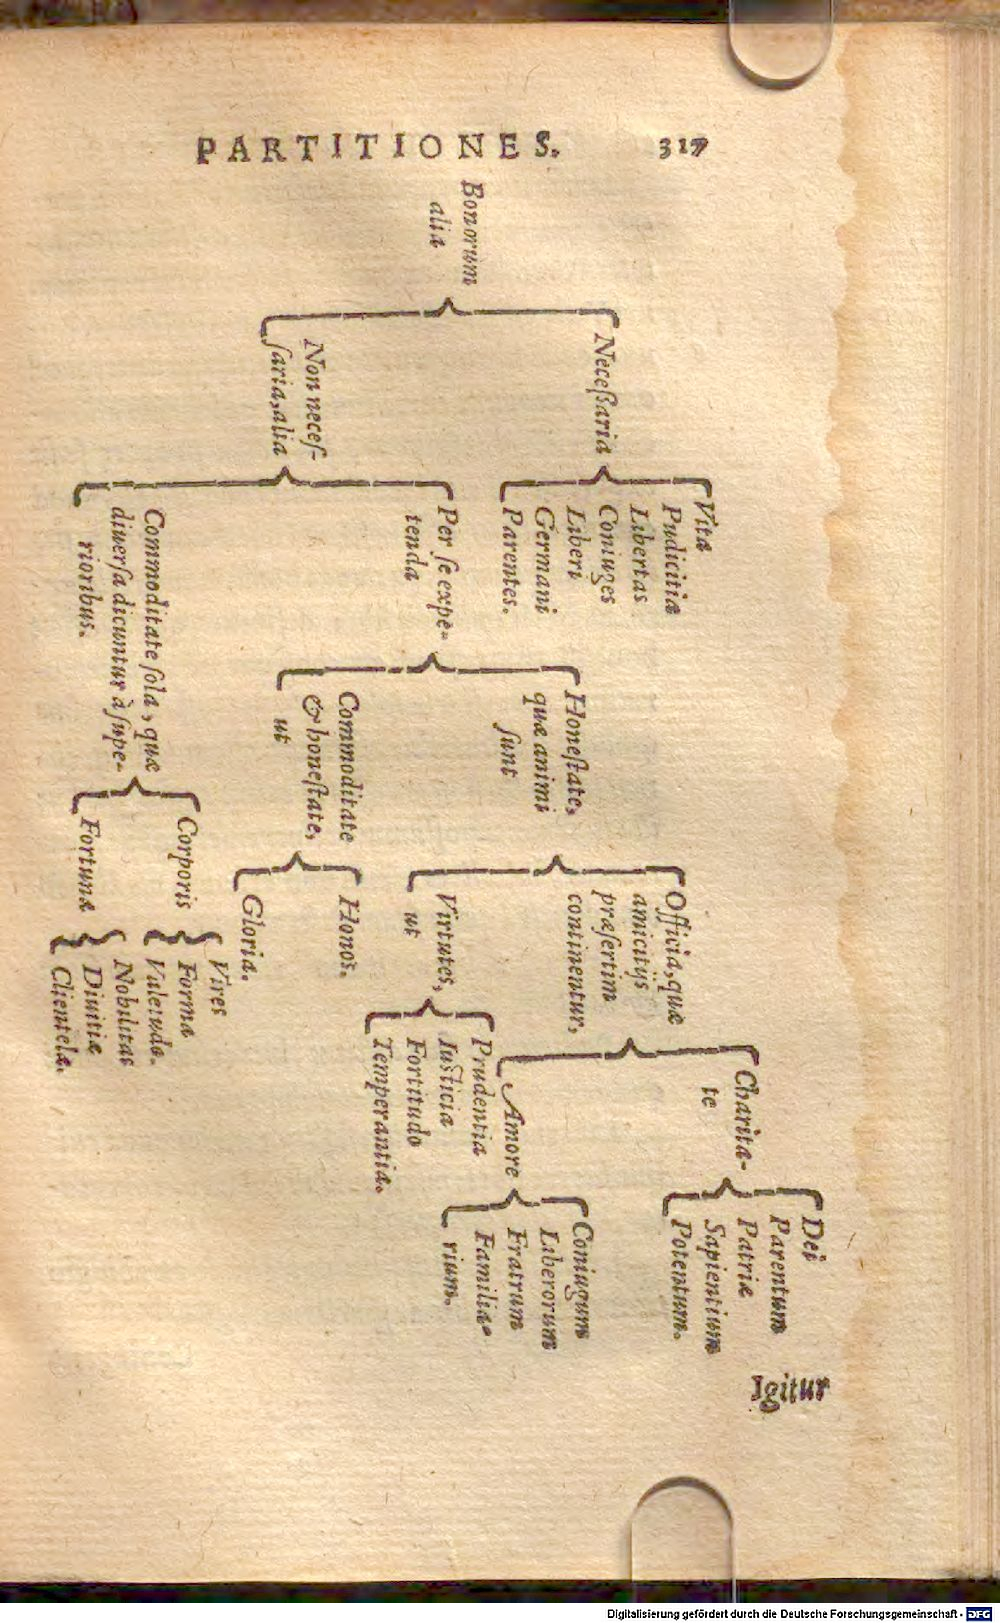 PARTITIONES. 317
Bonorum
alia
Neceßaria
Vita
Pudicitia
Libertas
Coniuges
Liberi
Germani
Parentes.
Non neceſ-
ſaria, alia
Per ſe expe-
tenda
Honeſtate,
quæ animi
ſunt
Officia, quæ
amicitijs
præſertim
continentur,
Charita-
te
Dei
Parentum
Patriæ
Sapientium
Potentum.
Amore
Coniugum
Liberorum
Fratrum
Familia-
rium.
Virtutes,
ut
Prudentia
Iuſticia
Fortitudo
Temperantia.
Commoditate
& honeſtate,
ut
Honos.
Gloria.
Commoditate ſola, quæ
diuerſa dicuntur à ſupe-
rioribus.
Corporis
Vires
Forma
Valetudo.
Fortunæ
Nobilitas
Diuitiæ
Clientelæ.
Igitur
Digitalisierung gefördert durch die Deutsche Forschungsgemeinschaft - DFG